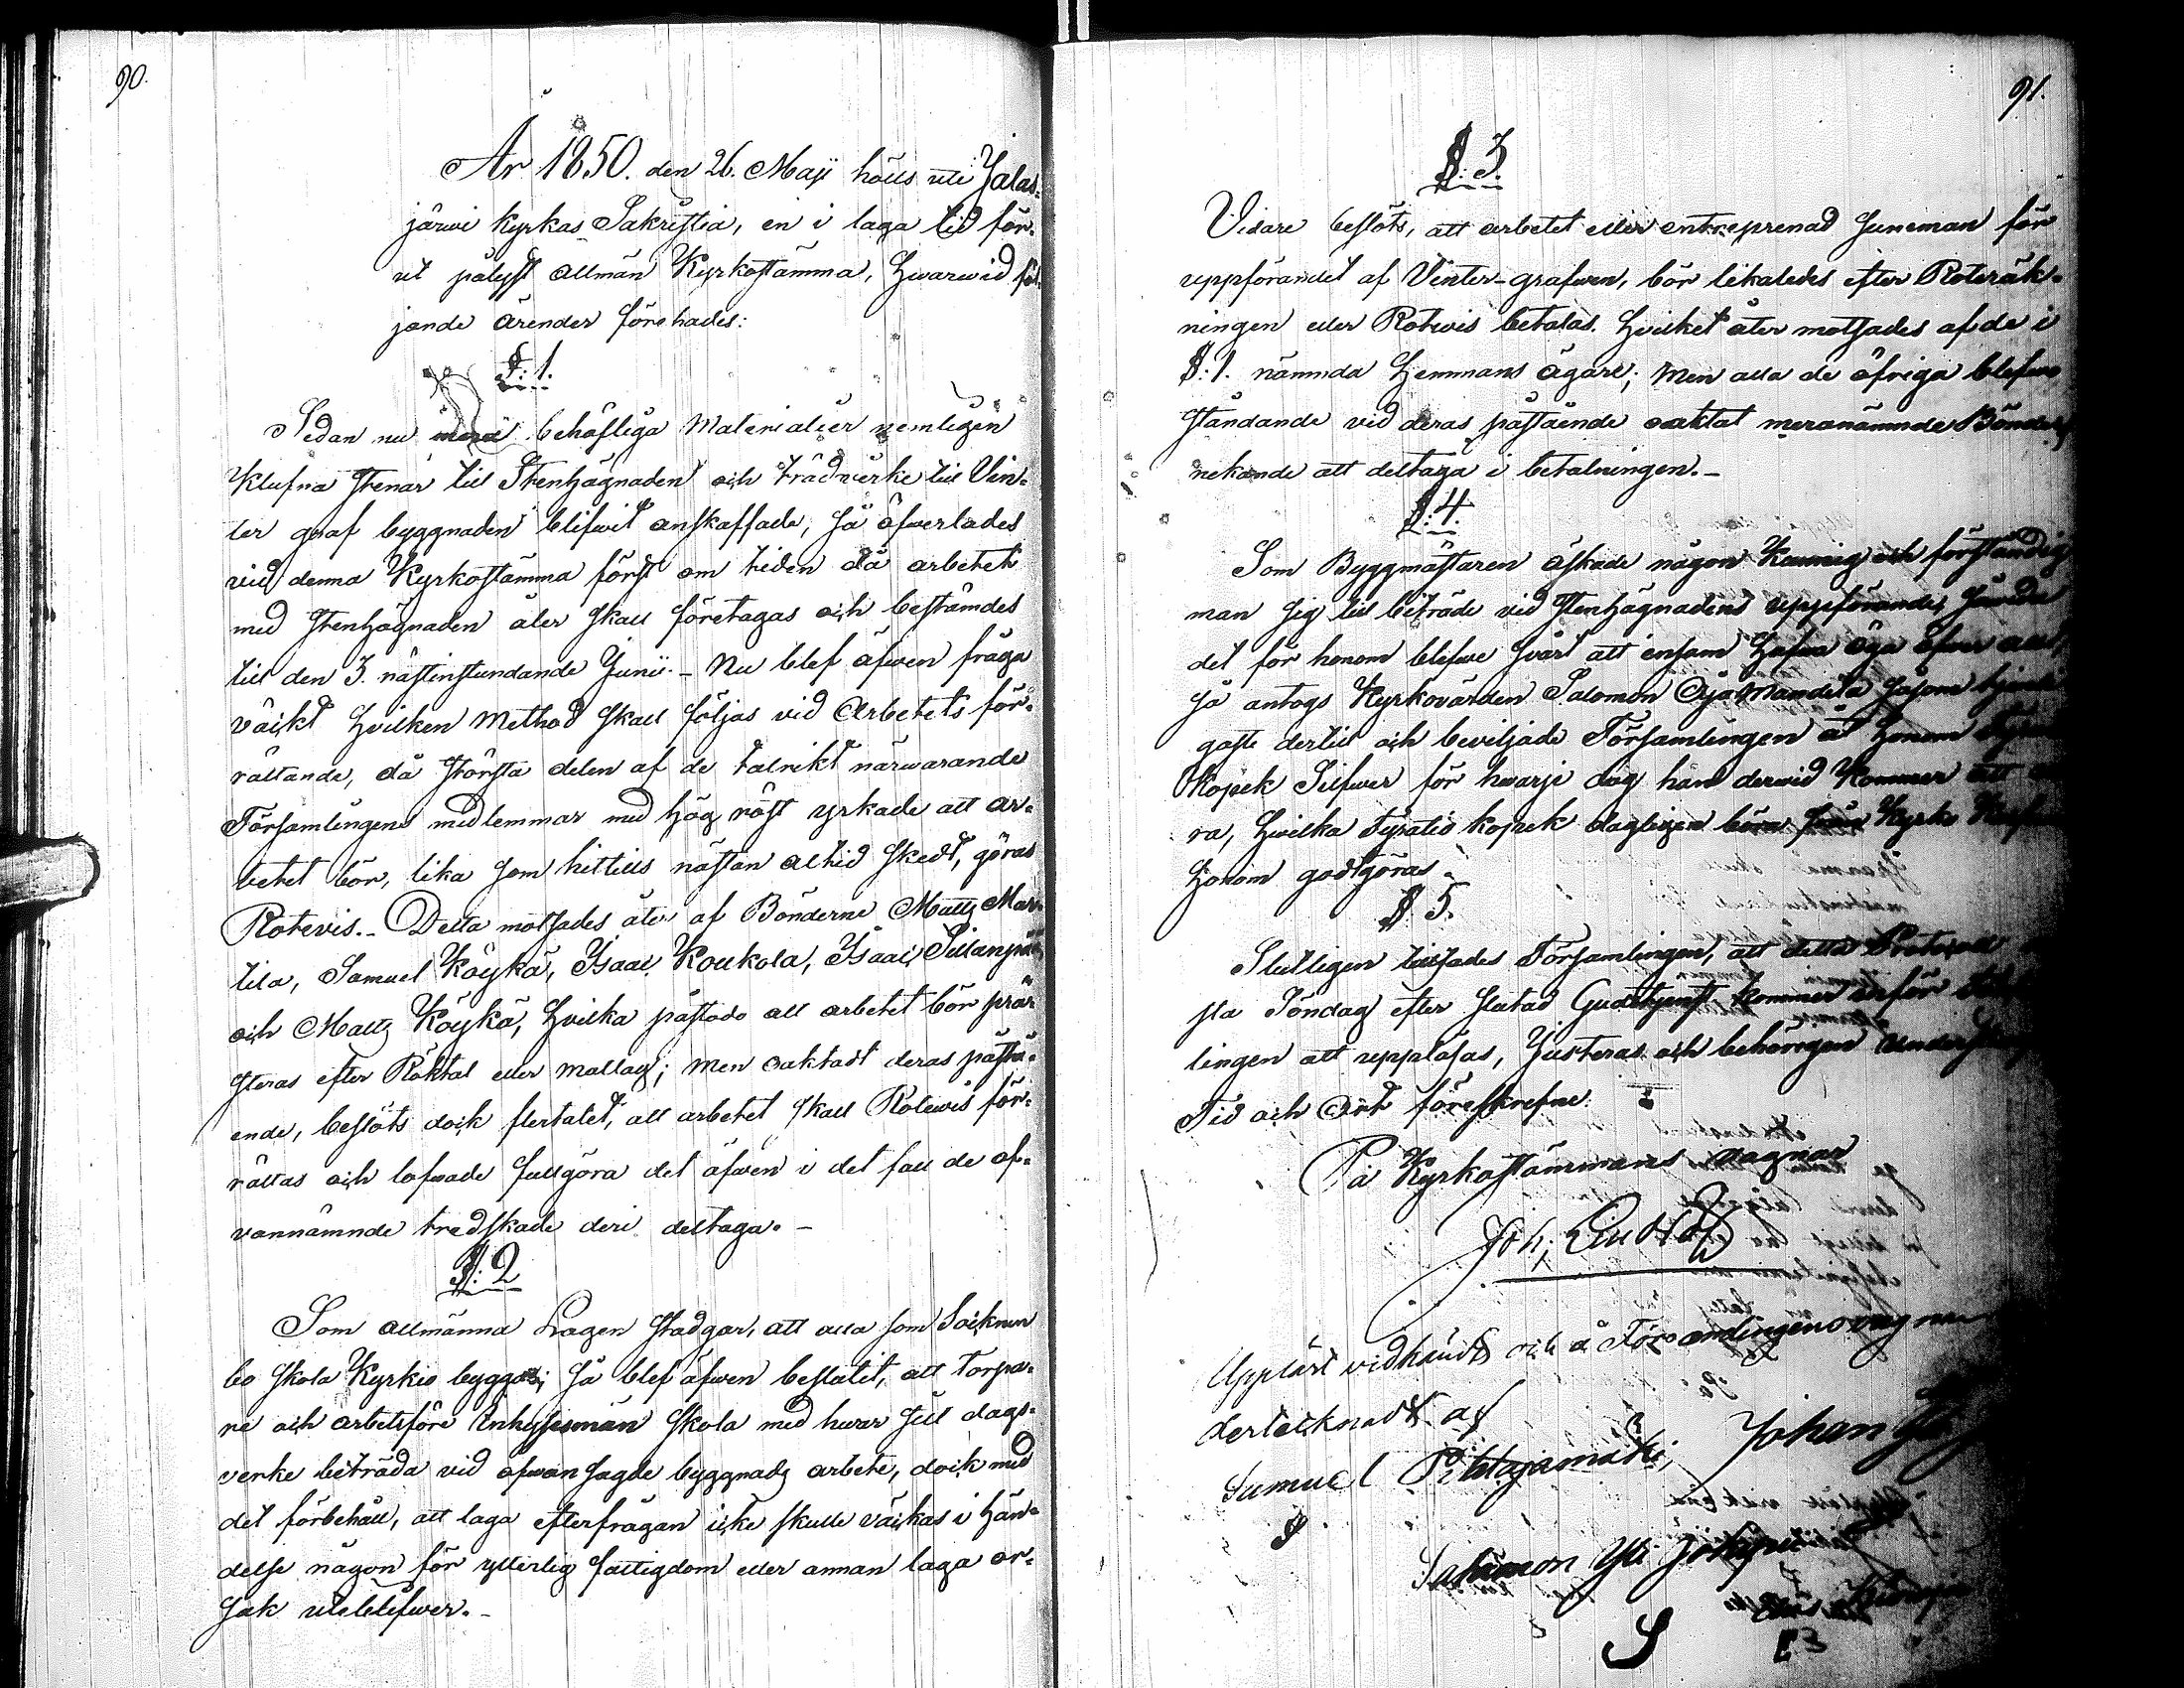 90.
År 1850. den 26. Maji hölls uti Jalas-
järwi kyrkas Sakristia, en i laga tid för-
ut pålyst allmän Kyrkostämma, hvarwid föl-
jande ärender förehades:
§: 1.
Sedan nu mera behöfliga Materialier nemligen
klufna stenar till Stenhägnaden och trädvirke till Vin-
ter graf byggnaden blifwit anskaffade, så öfwerlades
vid denna Kyrkostämma först om tiden då arbetet
med Stenhägnaden åter skall företagas och bestämdes
till den 3. nästinstundande Junii. - Nu blef äfwen fråga
väckt hvilken Method skall följas vid Arbetets för-
rättande, då största delen af de talrikt närwarande
Församlingens medlemmar med hög röst yrkade att ar-
betet bör, lika som hittills nästan altid skedt, göras
Rotevis. - Detta motsades åter af Bönderne Matts Mar-
tila, Samuel Köykä, Isaac Koukola, Isaac Sillanpää
och Matts Köykä, hvilka påstodo att arbetet bör präs-
teras efter Röktal eller mattag; men oaktadt deras påstå-
ende, beslöts dock flertalet, att arbetet skall Rotewis för-
rättas och lofwade fullgöra det äfwen i det fall de of-
vannämnde tredskade deri deltaga. -
§: 2
Som allmänna Lagen stadgar, att alla som Socknen
bo skola Kyrkio bygga; så blef äfwen beslutit, att torpa-
re och arbetsföre Inhysesmän skola med hwar sitt dags-
verke biträda vid ofwansagde byggnads arbete, dock med
det förbehåll, att laga efterfrågan icke skulle väckas i hän-
delse någon för ytterlig fattigdom eller annan laga or-
sak uteblifwer. -
91.
§: 3.
Vidare beslöts, att arbetet eller entreprenad summan för
uppförandet af Vinter-grafwen, bör likaledes efter Roteräk-
ningen eller Rotwis betalas. Hvilket åter motsades af de i
§: 1. nämnda Hemmans ägare; Men alla de öfriga blefwo
ståndande vid deras påstående oaktat meranämnde Bönders
nekande att deltaga i betalningen. -
§: 4.
Som Byggmästaren äskade någon Kunnig och förståndig
man sig till biträde vid Stenhägnadens uppförande,
det för honom blifwe svårt att ensam hafwa öga öfwer allt,
så antogs Kyrkovärden Salomon Ojamandila såsom
gaste dertill och beviljade Församlingen åt honom
kopek Silfwer för hwarje dag han derwid kommer att
ra, hwilka tyratio kopek dagligen böra från Kyrko
honom godtgöras.
§ 5.
Slutligen tillsades Församlingen, att detta Protocoll
sta Söndag efter slutad Gudstjenst kommer inför
lingen att uppläsas, justeras och behörigen
Tid och Ort föreskrefne.
På Kyrkostämmans vagnar
Joh:
Uppläst vidkändt och å Församlingens vagnar
dertecknadt af
Samuel Pihlajamäki, Johan
S
Salamon Yli
S